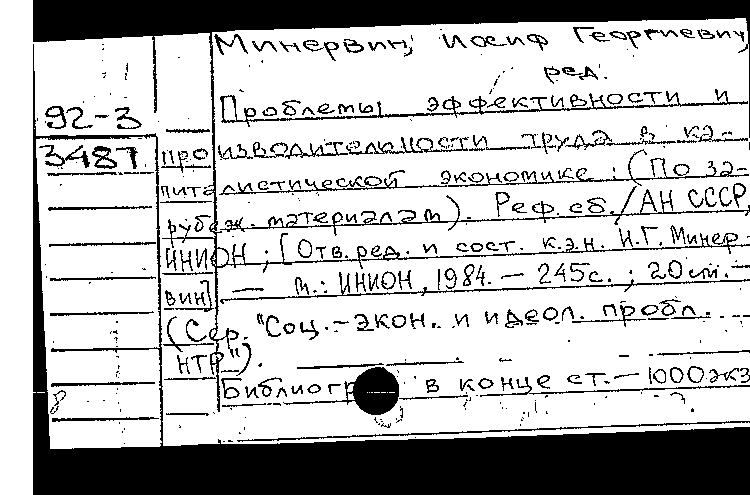 Минервин, Иосиф Георгиевич,
ред.
92-3
3487
Проблемы эффективности и
производительности труда в ка-
питалистической экономике: (По за-
рубеж. материалам). Реф. сб./АН СССР,
ИНИОН; [Отв. ред. и сост. к.э.н. И.Г. Минер-
вин]. — М.: ИНИОН, 1984. — 245с.; 20см. —
(Сер. "Соц.-экон. и идеол. пробл.
НТР").
Библиогр в конце ст. — 1000экз
8